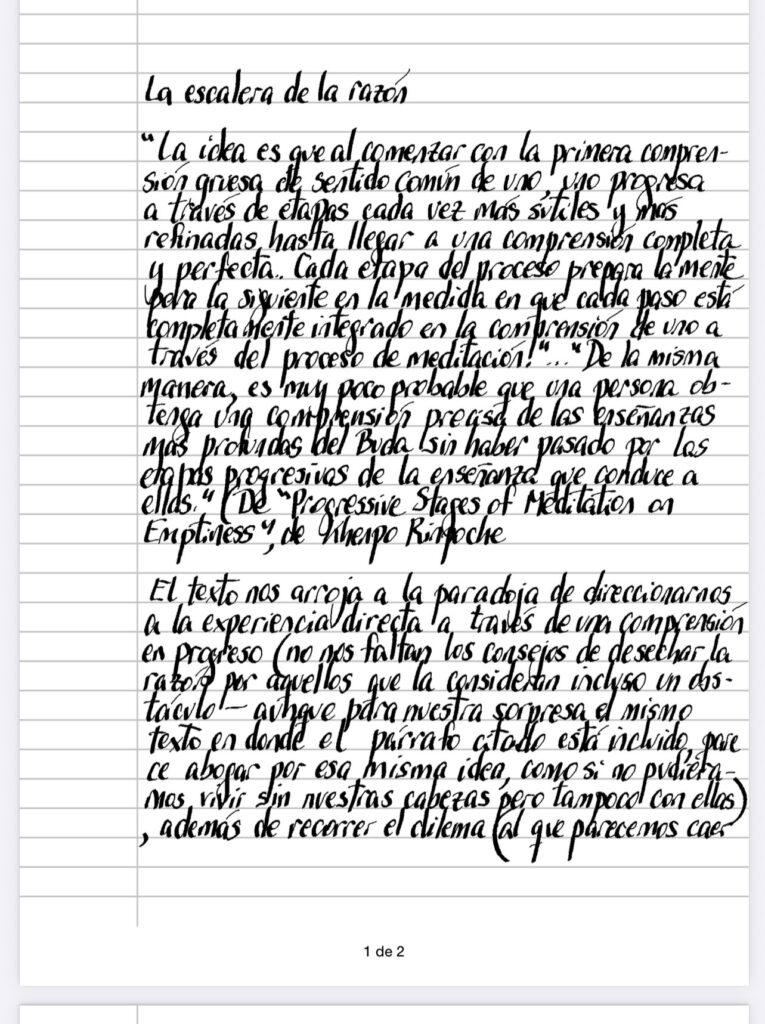 La escalera de la razón
"La idea es que al comenzar con la primera compren-
sión gruesa de sentido común de uno, uno progresa
a través de etapas cada vez más sútiles y más
refinadas, hasta llegar a una comprensión completa
y perfecta. Cada etapa del proceso prepara la mente
para la siguiente en la medida en que cada paso está
completamente integrado en la comprensión de uno a
través del proceso de meditación."..."De la misma
manera, es muy poco probable que una persona ob-
tenga una comprensión precisa de las enseñanzas
más profundas del Buda sin haber pasado por las
etapas progresivas de la enseñanza que conduce a
ellas." (De "Progressive Stages of Meditation on
Emptiness", de Khenpo Rinpoche
El texto nos arroja a la paradoja de direccionarnos
a la experiencia directa a través de una comprensión
en progreso (no nos faltan los consejos de desechar la
razón por aquellos que la consideran incluso un obs-
táculo — aunque para nuestra sorpresa el mismo
texto en donde el párrafo citado está incluido, pare
ce abogar por esa misma idea, como si no pudiéra-
mos vivir sin nuestras cabezas pero tampoco con ellas)
, además de recorrer el dilema (al que parecemos caer
1 de 2